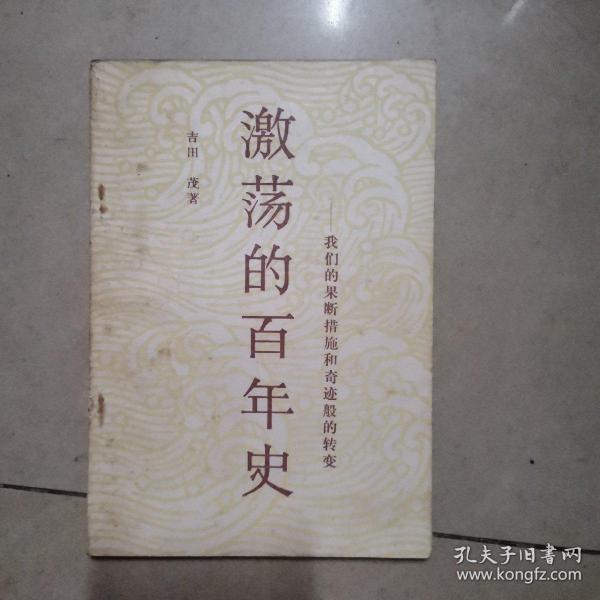 激荡的百年史
——我们的果断措施和奇迹般的转变
吉田 茂著
孔夫子旧書网
www.kongfz.com